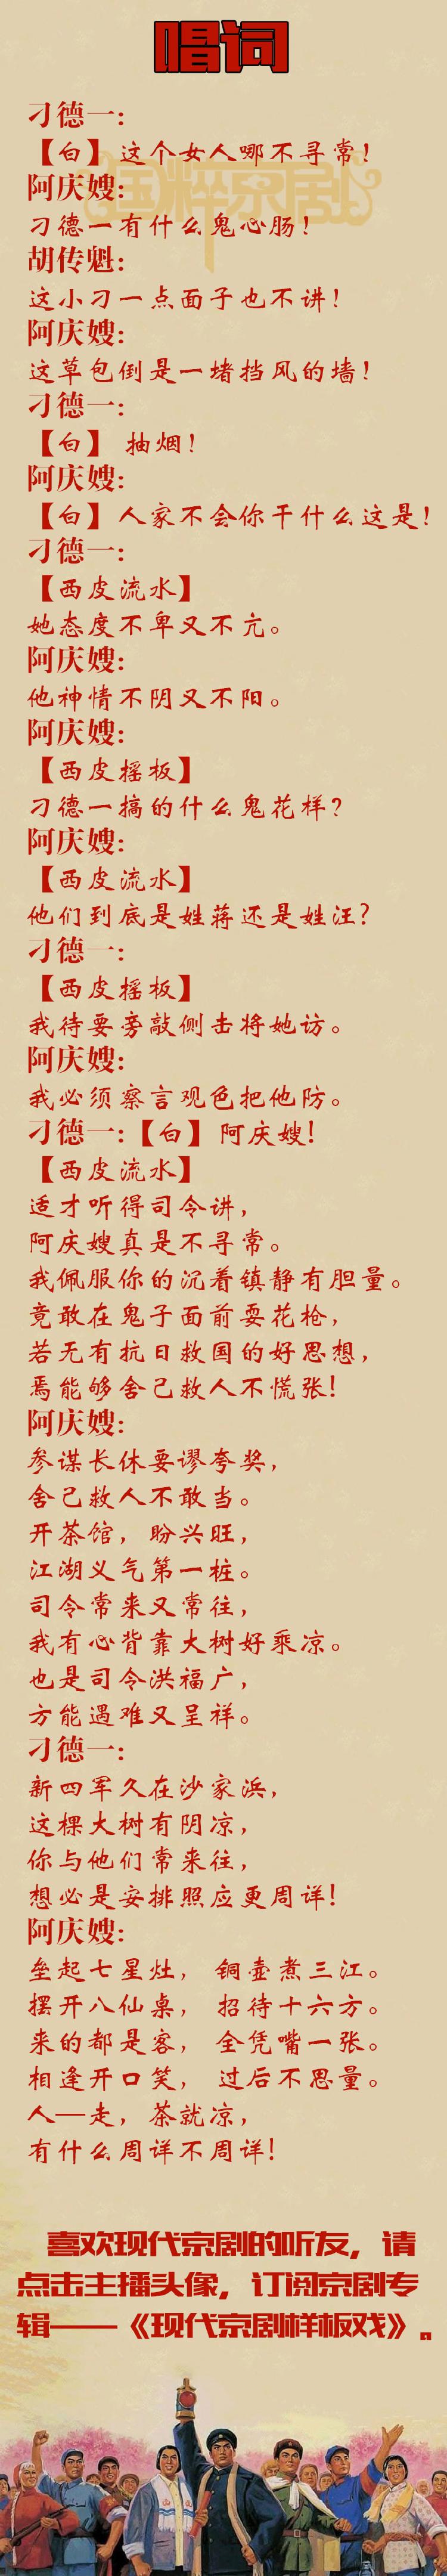 唱词
国粹京剧
刁德一:
【白】这个女人哪不寻常!
阿庆嫂:
刁德一有什么鬼心肠!
胡传魁:
这小刁一点面子也不讲!
阿庆嫂:
这草包倒是一堵挡风的墙!
刁德一:
【白】 抽烟!
阿庆嫂:
【白】人家不会你干什么这是!
刁德一:
【西皮流水】
她态度不卑又不亢。
阿庆嫂:
他神情不阴又不阳。
阿庆嫂:
【西皮摇板】
刁德一搞的什么鬼花样?
阿庆嫂:
【西皮流水】
他们到底是姓蒋还是姓汪?
刁德一:
【西皮摇板】
我待要旁敲侧击将她访。
阿庆嫂:
我必须察言观色把他防。
刁德一:【白】 阿庆嫂!
【西皮流水】
适才听得司令讲,
阿庆嫂真是不寻常。
我佩服你的沉着镇静有胆量。
竟敢在鬼子面前耍花枪,
若无有抗日救国的好思想,
焉能够舍己救人不慌张!
阿庆嫂:
参谋长休要谬夸奖,
舍己救人不敢当。
开茶馆, 盼兴旺,
江湖义气第一桩。
司令常来又常往,
我有心背靠大树好乘凉。
也是司令洪福广,
方能遇难又呈祥。
刁德一:
新四军久在沙家浜,
这棵大树有阴凉,
你与他们常来往,
想必是安排照应更周详!
阿庆嫂:
垒起七星灶, 铜壶煮三江。
摆开八仙桌, 招待十六方。
来的都是客, 全凭嘴一张。
相逢开口笑, 过后不思量。
人—走, 茶就凉,
有什么周详不周详!
喜欢现代京剧的听友, 请
点击主播头像, 订阅京剧专
辑——《现代京剧样板戏》。